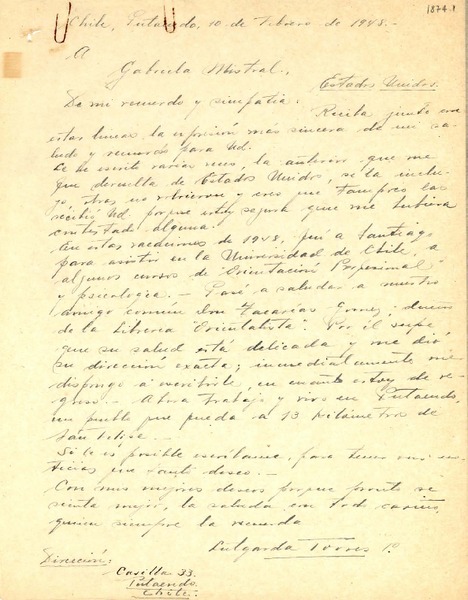 1874.1
Chile, Putaendo, 10 de Febrero de 1948.-
A
Gabriela Mistral,
Estados Unidos.
De mi recuerdo y simpatía:
Reciba junto con
estas líneas la expresión más sincera de mi sa-
ludo y recuerdo para Ud.
Le he escrito varias veces, la anterior que me
fue devuelta de Estados Unidos, se la inclu-
yo, otras no volvieron y creo que tampoco las
recibió Ud. porque estoy segura que me hubiera
contestado alguna.
En estas vacaciones de 1948, fuí a Santiago
para asistir en la Universidad de Chile, a
algunos cursos de "Orientación Profesional"
y psicología.- Pasé a saludar a nuestro
amigo común Don Zacarías Gómez, dueño
de la Librería "Orientalista". Por él supe
que su salud está delicada y me dió
su dirección exacta; inmediatamente me
dispongo a escribirle, en cuanto estoy de re-
greso.- Ahora trabajo y vivo en Putaendo,
un pueblo que queda a 13 kilómetros de
San Felipe.
Si le es posible escríbame, para tener sus no-
ticias que tanto deseo.-
Con mis mejores deseos porque pronto se
sienta mejor, la saluda con todo cariño,
quien siempre la recuerda
Lulgarda Torres P.
Dirección:
Casilla 33.
Putaendo.
Chile.